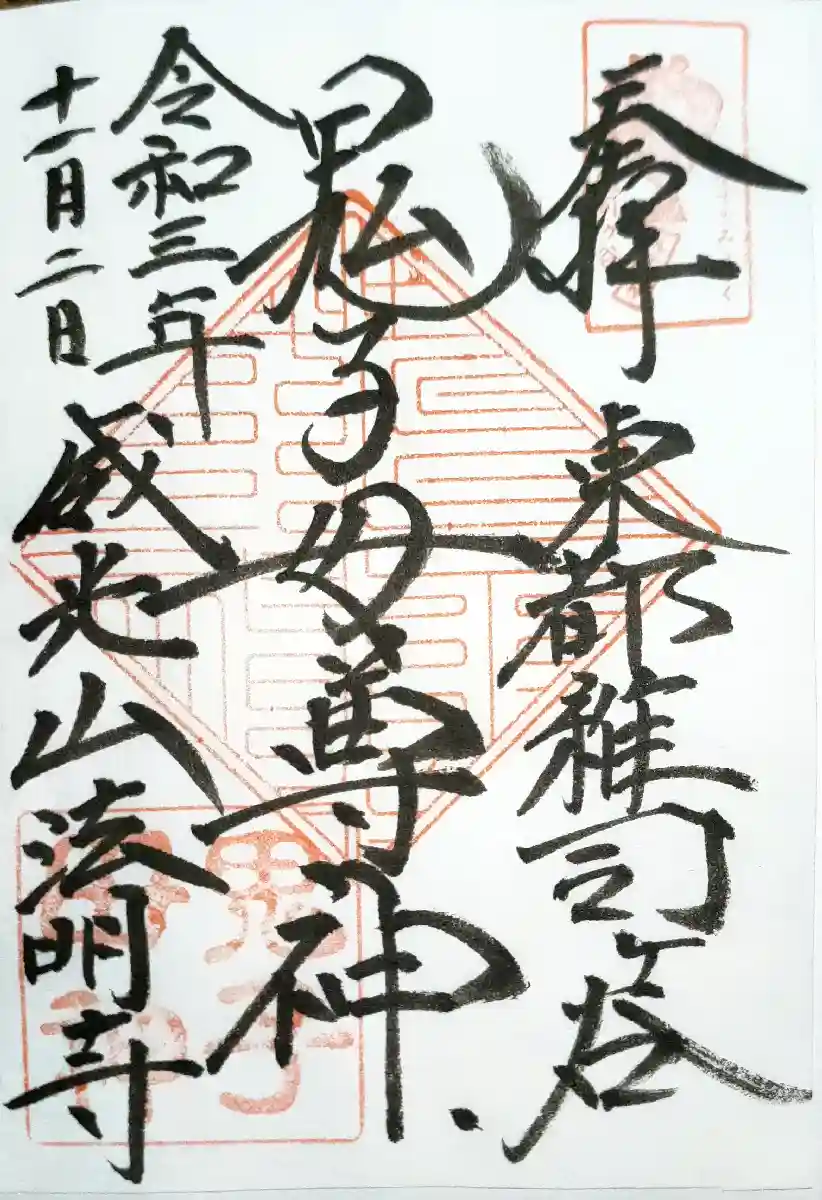 奉拝
東都雑司ヶ谷
鬼子母尊神
令和三年
十一月二日
威光山法明寺
鬼子